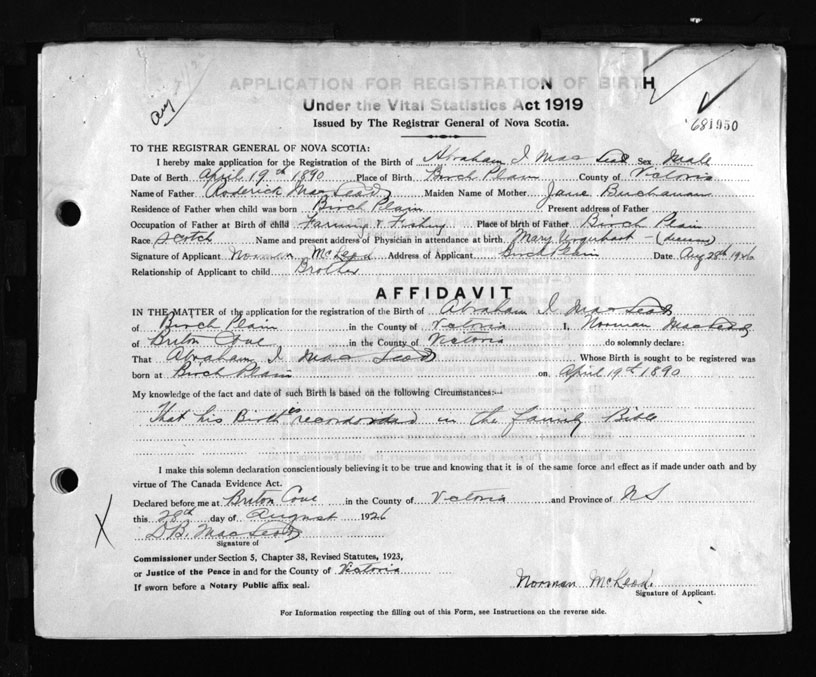 APPLICATION FOR REGISTRATION OF BIRTH
Under the Vital Statistics Act 1919
Issued by The Registrar General of Nova Scotia.
681950
Aug
TO THE REGISTRAR GENERAL OF NOVA SCOTIA:
I hereby make application for the Registration of the Birth of Abraham I. MacLeod Sex Male
Date of Berth April 19th 1890 Place of Birth Birch Plain County of Victoria
Name of Father Roderick MacLeod Maiden Name of Mother Jane Buchanan
Residence of Father when child was born Birch Plain Present address of Father
Occupation of Father at Birth of child Farming & Fishing Place of birth of Father Birch Plain
Race Scotch Name and present address of Physician in attendance at birth Mary Urquhart —
Signature of Applicant Norman McLeod Address of Applicant Birch Plain Date Aug 28th 1926
Relationship of Applicant to child Brother
AFFIDAVIT
IN THE MATTER of the application for the registration of the Birth of Abraham I. MacLeod
of Birch Plain in the County of Victoria I, Norman MacLeod
of Briton Cove in the County of Victoria do solemnly declare:
That Abraham I MacLeod Whose Birth is sought to be registered was
born at Birch Plain on April 19th 1890
My knowledge of the fact and date of such Birth is based on the following Circumstances:—
That his Birth is recordorded in the family Bible
I make this solemn declaration conscientiously believing it to be true and knowing that it is of the same force and effect as if made under oath and by
virtue of The Canada Evidence Act.
Declared before me at Briton Cove in the County of Victoria and Province of NS
this 28th day of August 1926
D.B. MacLeod
Signature of
Commissioner under Section 5, Chapter 38, Revised Statutes, 1923,
or Justice of the Peace in and for the County of Victoria
If sworn before a Notary Public affix seal.
Norman McLeod.
Signature of Applicant.
For Information respecting the filling out of this Form, see Instructions on the reverse side.